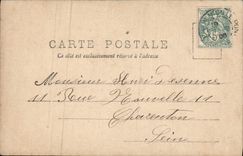 CARTE POSTALE
Ce côté est exclusivement réservé à l'adresse
Monsieur Henri
11 Rue 11
Charenton
Seine